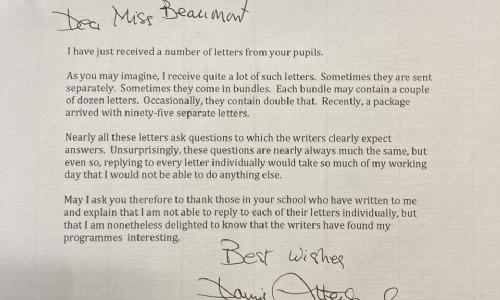 Dear Miss Beaumont
I have just received a number of letters from your pupils.
As you may imagine, I receive quite a lot of such letters. Sometimes they are sent
separately. Sometimes they come in bundles. Each bundle may contain a couple
of dozen letters. Occasionally, they contain double that. Recently, a package
arrived with ninety-five separate letters.
Nearly all these letters ask questions to which the writers clearly expect
answers. Unsurprisingly, these questions are nearly always much the same, but
even so, replying to every letter individually would take so much of my working
day that I would not be able to do anything else.
May I ask you therefore to thank those in your school who have written to me
and explain that I am not able to reply to each of their letters individually, but
that I am nonetheless delighted to know that the writers have found my
programmes interesting.
Best wishes